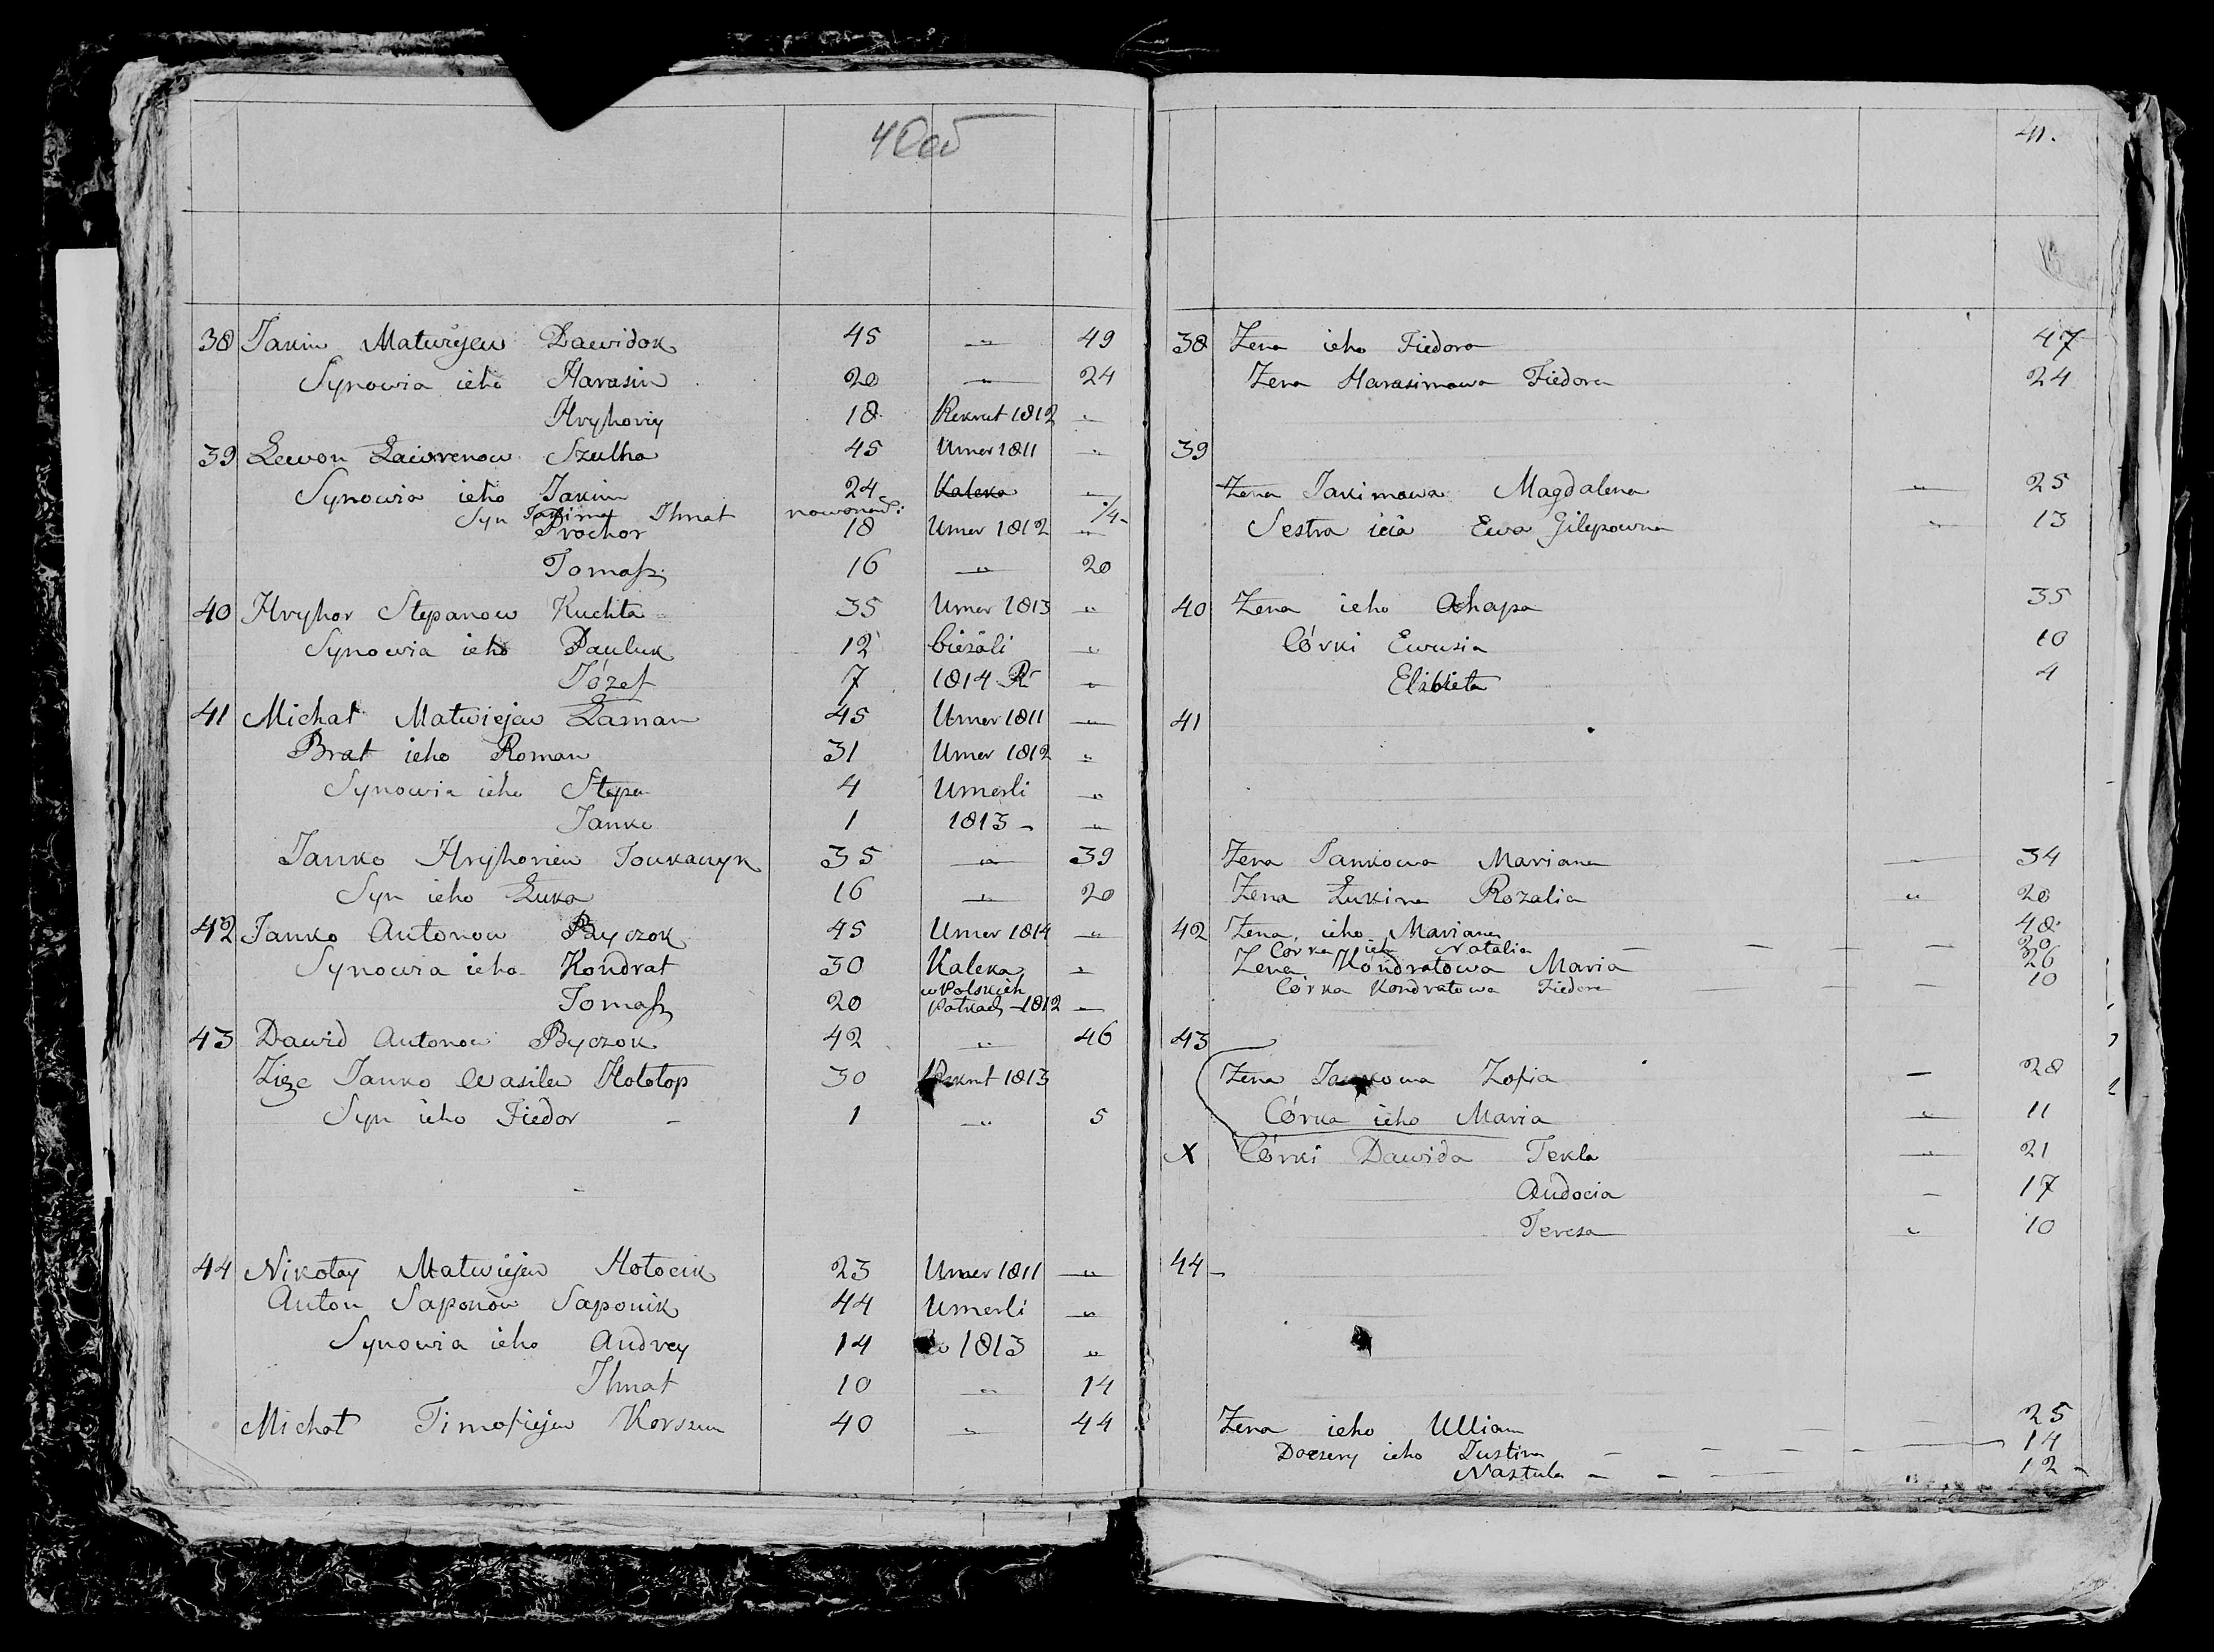 40об
38 Jakim Matwiejew Dawidok 45 — " — 49
Synowia ieho Harasim 20 — " — 24
Hryhoriy 18 Rekrut 1812 "
39 Lewon Ławrenow Szulha 45 Umer 1811 "
Synowia ieho Jakim 24 Kaleka "
Syn Jakima Ihnat nowonaro: 1/4 -
Prochor 18 Umer 1812 "
Tomasz 16 — " — 20
40 Hryhor Stepanow Kuchta 35 Umer 1813 "
Synowia ieho Pauluk 12 bieżali "
Józef 7 1814 R "
41 Michał Matwiejew Łaman 45 Umer 1811 "
Brat ieho Roman 31 Umer 1812 "
Synowia ieho Stepan 4 Umerli "
Janko 1 1813 - "
Janko Hryhoriew 35 — " — 39
Syn ieho Łuka 16 — " — 20
42 Janko Antonow Byczok 45 Umer 1814 "
Synowia ieho Kondrat 30 Kaleka "
w Polskich
Tomasz 20 Połkach - 1812 —
43 Dawid Antonow Byczok 42 " 46
Zięc Janko Wasilew Hołotop 30 Rekrut 1813
Syn ieho Fiedor - 1 — " 5
44 Nikołay Matwiejew Hołocik 23 Umer 1811 — " —
Anton Saponow Saponik 44 Umerli "
Synowia ieho Andrey 14 w 1813 "
Ihnat 10 — " 14
Michał Timofiejew Korszun 40 " 44
41.
38 Żena ieho Fiedora 47
Żena Harasimowa Fiedora 24
39
Żena Jakimowa Magdalena — " — 25
Sestra ieia Ewa Gilepowna " 13
40 Żena ieho Ahapa 35
Córki Ewrusia 10
Elżbieta 4
41
Żena Jankowa Mariana — 34
Żena Łukina Rozalia " 20
42 Żena ieho Mariana 48
Córka ieho Natalia — — — — 20
Żena Kondratowa Maria 26
Córka Kondratowa Fiedora — — — 10
43
Żena Jankowa Zofia — 28
Córka ieho Maria " 11
X Córki Dawida Tekla — " — 21
Audocia — 17
Teresa " 10
44 -
Żena ieho Ulliana 25
Doczery ieho Justina — — — — 14
Nastula — — — " " 12 -